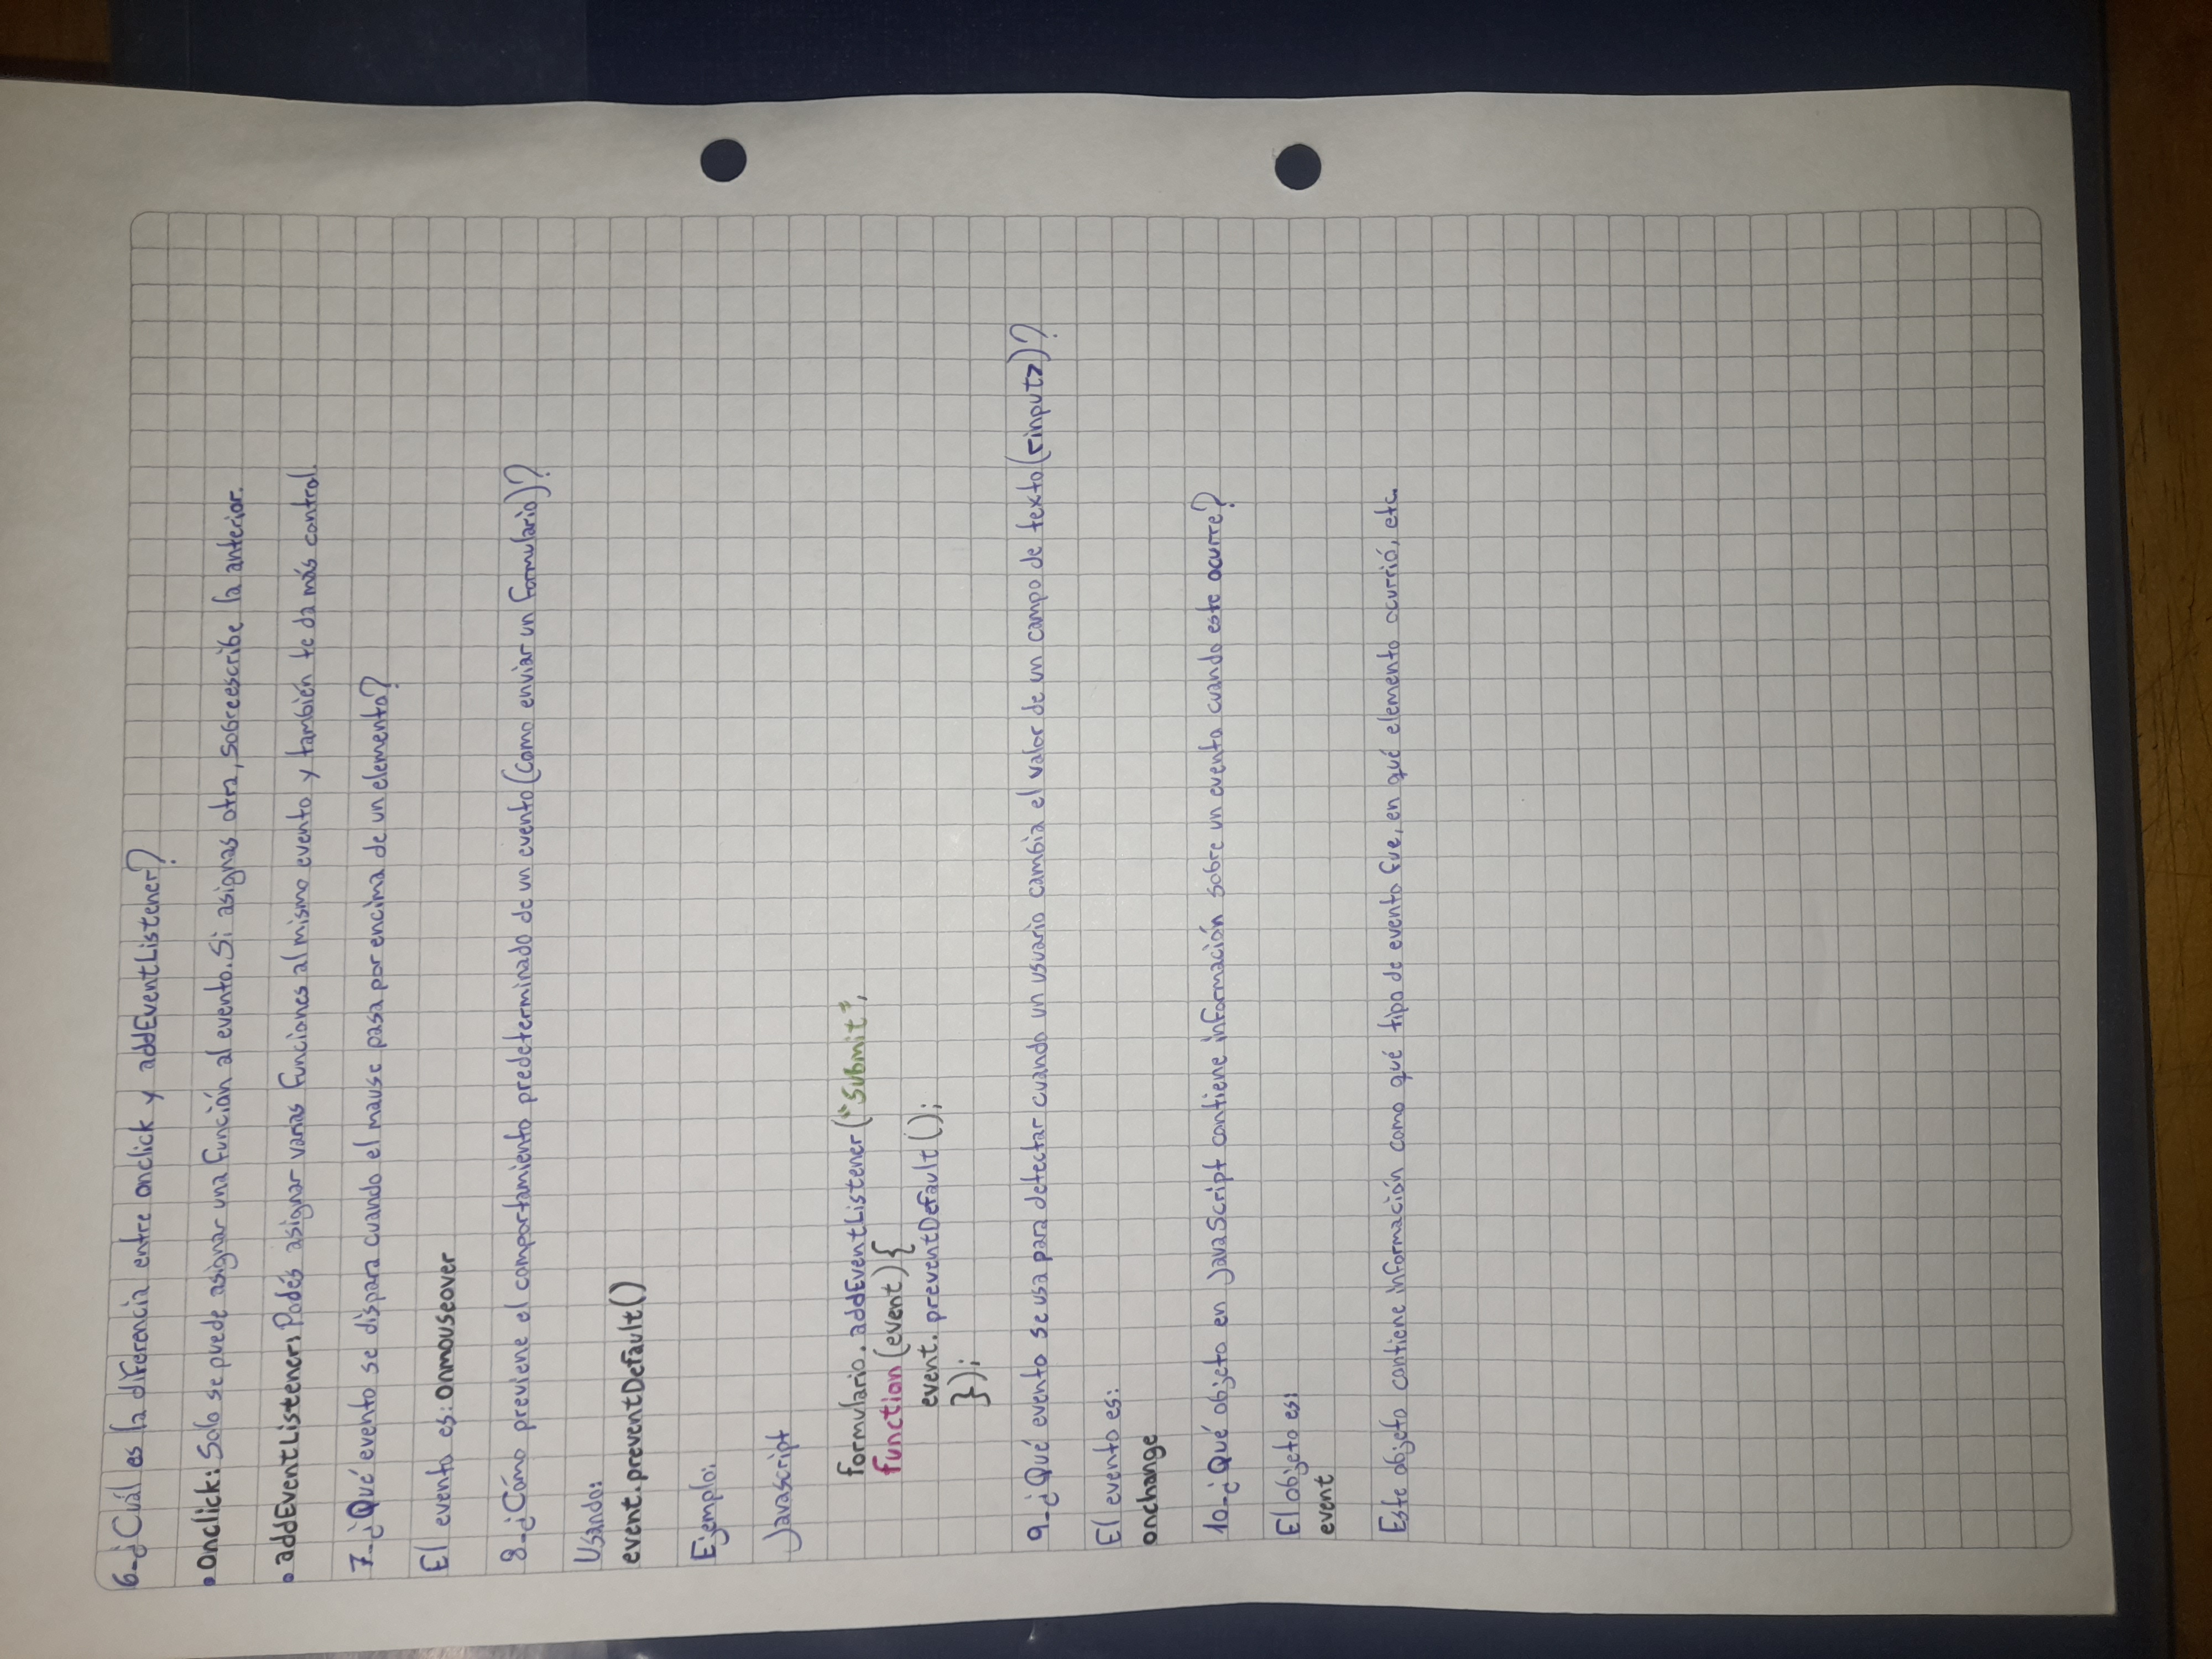 6-¿Cuál es la diferencia entre onclick y addEventListener?
• Onclick: Solo se puede asignar una función al evento. Si asignas otra, sobreescribe la anterior.
• addEventListener: Podés asignar varias funciones al mismo evento y también te da más control.
7-¿Qué evento se dispara cuando el mouse pasa por encima de un elemento?
El evento es: onmouseover
8-¿Cómo previene el comportamiento predeterminado de un evento (como enviar un formulario)?
Usando:
event.preventDefault()
Ejemplo:
Javascript
formulario.addEventListener("Submit",
function (event) {
event.preventDefault();
});
9-¿Qué evento se usa para detectar cuando un usuario cambia el valor de un campo de texto (<input>)?
El evento es:
onchange
10-¿Qué objeto en JavaScript contiene información sobre un evento cuando este ocurre?
El objeto es:
event
Este objeto contiene información como qué tipo de evento fue, en qué elemento ocurrió, etc.